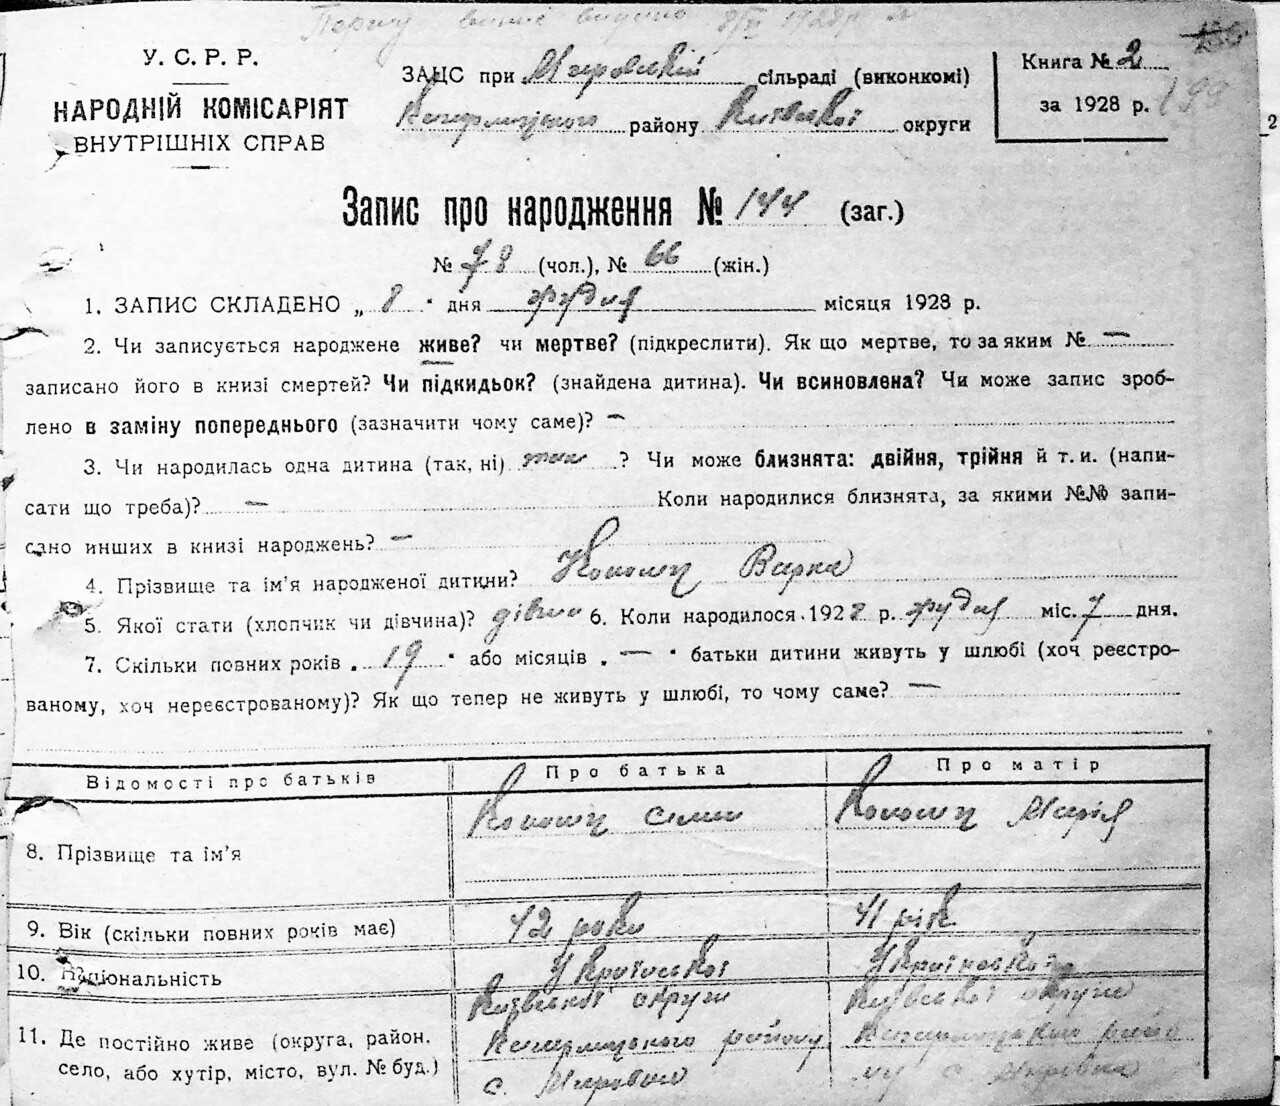 Першу випис видано 8/XI 1928 р.
У. С. Р. Р.
НАРОДНІЙ КОМІСАРІЯТ
ВНУТРІШНІХ СПРАВ
ЗАГС при Мировській сільраді (виконкомі)
Кагарлицького району Київської округи
Книга № 2
за 1928 р.
199
2
Запис про народження № 144 (заг.)
№ 78 (чол.), № 66 (жін.)
1. ЗАПИС СКЛАДЕНО „ 8 " дня грудня місяця 1928 р.
2. Чи записується народжене живе? чи мертве? (підкреслити). Як що мертве, то за яким № —
записано його в книзі смертей? Чи підкидьок? (знайдена дитина). Чи всиновлена? Чи може запис зроб-
лено в заміну попереднього (зазначити чому саме)? —
3. Чи народилась одна дитина (так, ні) так ? Чи може близнята: двійня, трійня й т. и. (напи-
сати що треба)? — Коли народилися близнята, за якими №№ запи-
сано инших в книзі народжень? —
4. Прізвище та ім'я народженої дитини? Коломієць Варка
5. Якої стати (хлопчик чи дівчина)? дівчина 6. Коли народилось 1928 р. грудня міс. 7 дня.
7. Скільки повних років „ 19 " або місяців „ — " батьки дитини живуть у шлюбі (хоч реєстро-
ваному, хоч нереєстрованому)? Як що тепер не живуть у шлюбі, то чому саме? —
Відомості про батьків Про батька Про матір
8. Прізвище та ім'я Семен Марія
9. Вік (скільки повних років має) 42 роки 41 рік
10. Національність Української Української
11. Де постійно живе (округа, район, село, або хутір, місто, вул. № буд.)
Київської округи Кагарлицького району с. Мировка
Київської округи Кагарлицького району с. Мировка